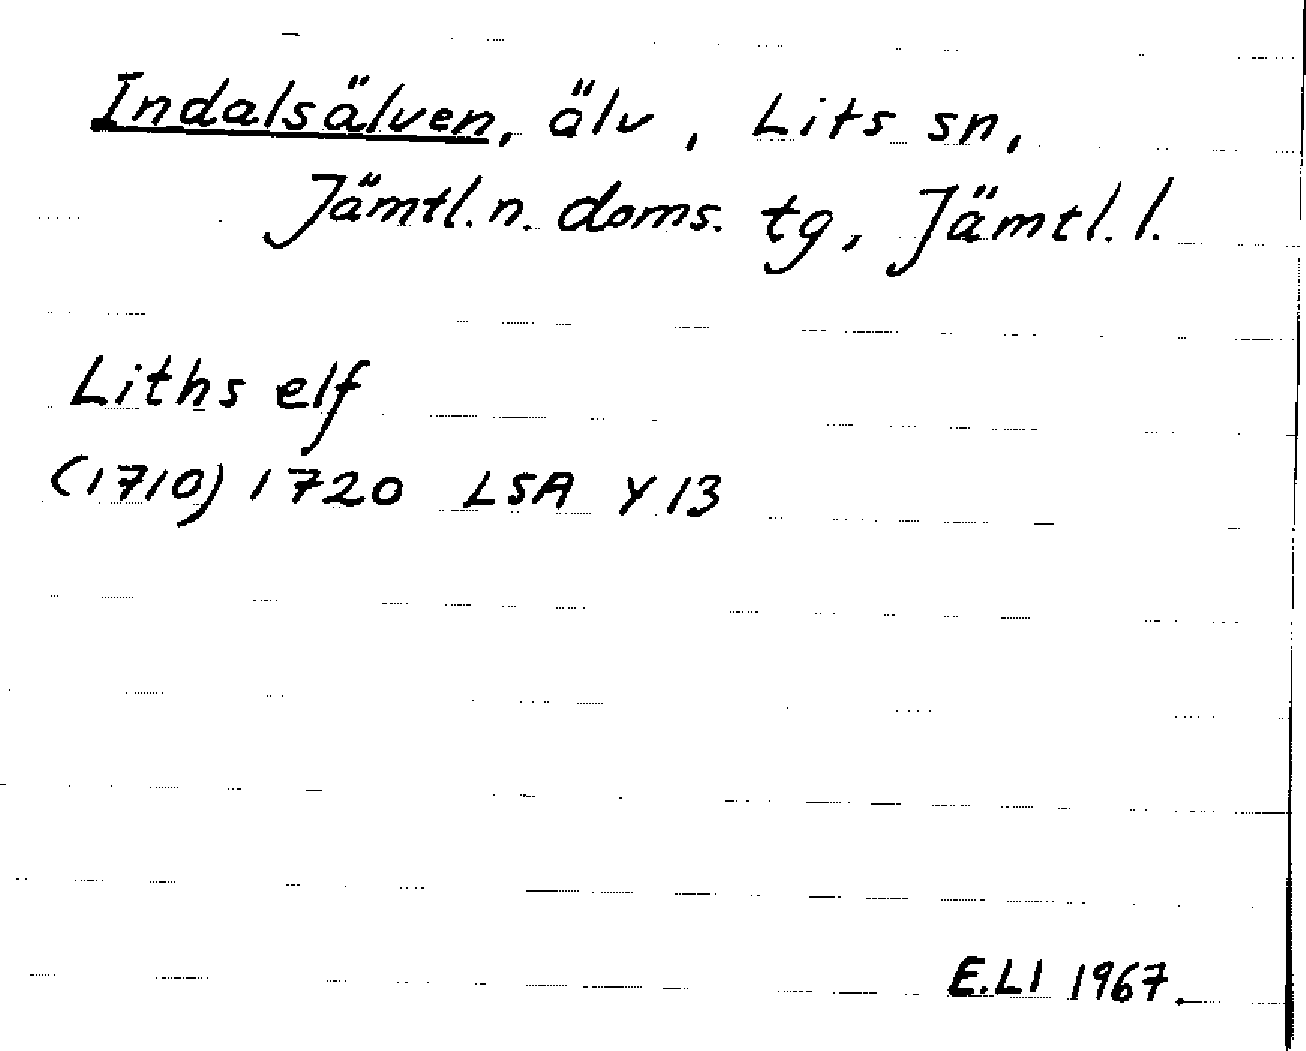 Indalsälven, älv, Lits sn,
Jämtl. n. doms. tg, Jämtl. l.
Liths elf
(1710) 1720 LSA Y 13
E.LI 1967.